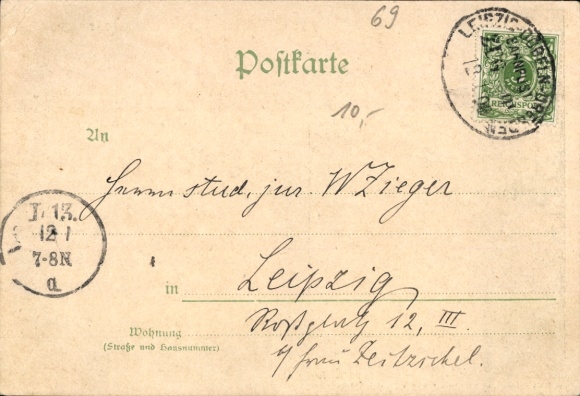 69
Postkarte
LEIPZIG-DÖBELN-DRESDEN
BAHNPOST
REICHSPOST
10,-
An
Herrn stud. jur. W Zieger
L 13.
12 1
7-8N
d.
in Leipzig
Roßplatz 12, III
Wohnung
(Straße und Hausnummer)
b/ Frau Zeitzschel.